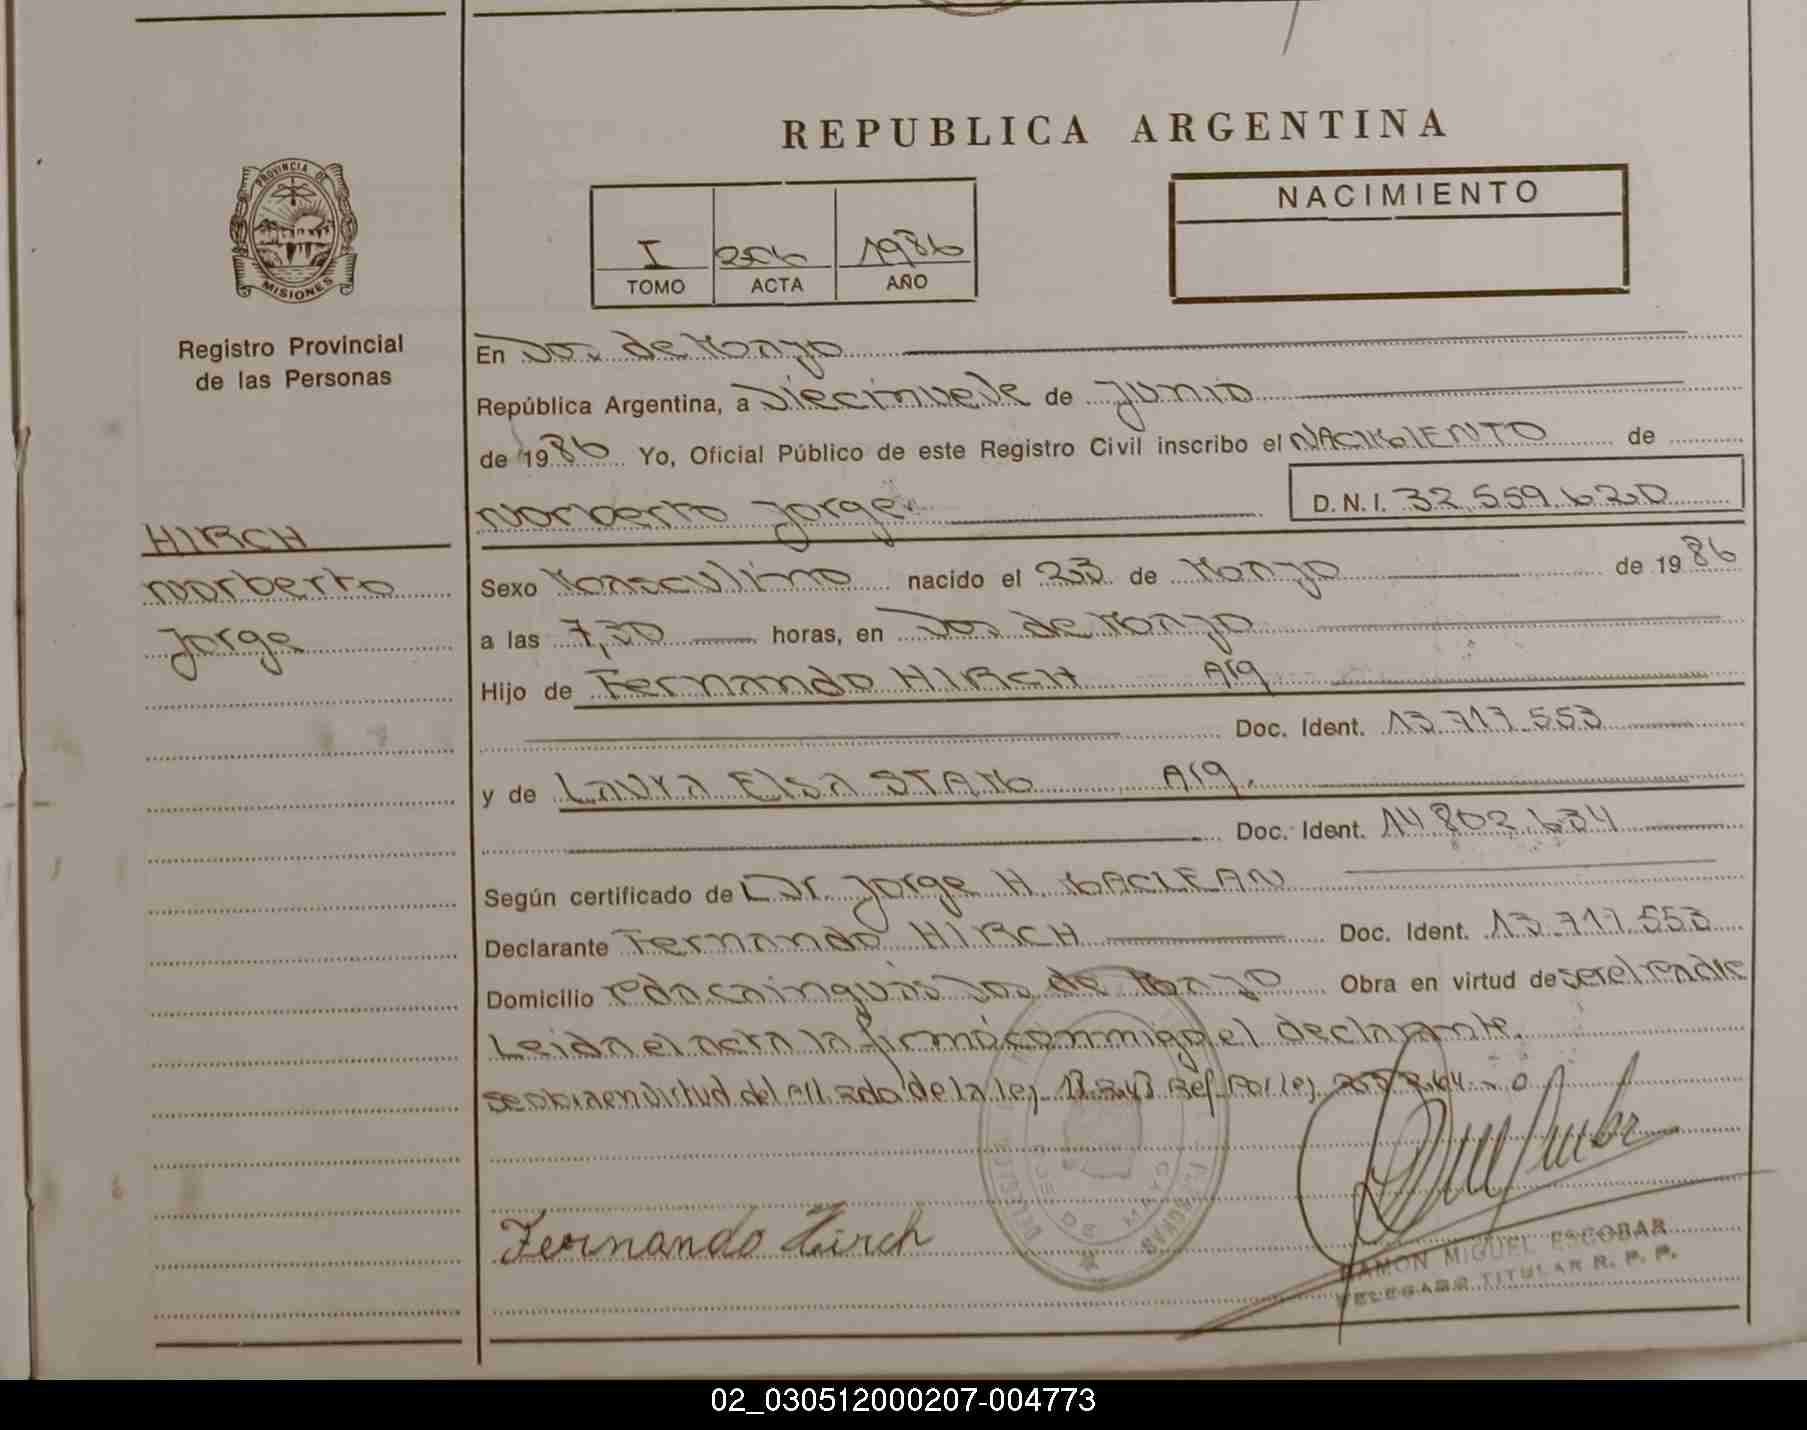 REPUBLICA ARGENTINA
PROVINCIA DE
MISIONES
Registro Provincial
de las Personas
I 256 1986
TOMO ACTA AÑO
NACIMIENTO
HIRCH
Norberto
Jorge
En Dos de Mayo
República Argentina, a Diecinueve de Junio
de 1986 Yo, Oficial Público de este Registro Civil inscribo el NACIMIENTO de
Norberto Jorge D.N.I. 32.559.620
Sexo Masculino nacido el 23 de Mayo de 1986
a las 7,30 horas, en Dos de Mayo
Hijo de Fernando HIRCH Arg
Doc. Ident. 13.717.553
y de LAURA ElSA STAM Arg.
Doc. Ident. 14.802.634
Según certificado de Dr. Jorge H. MACLEAN
Declarante Fernando HIRCH Doc. Ident. 13.717.553
Domicilio Pda Cainguás Dos de Mayo Obra en virtud de ser el Padre
Leida el acta la firmó conmigo el declarante.
se obra en virtud del de la ley Ref. Por ley
Fernando Hirch
DOS DE MAYO
RAMON MIGUEL ESCOBAR
DELEGADO TITULAR R. P. P.
02_030512000207-004773